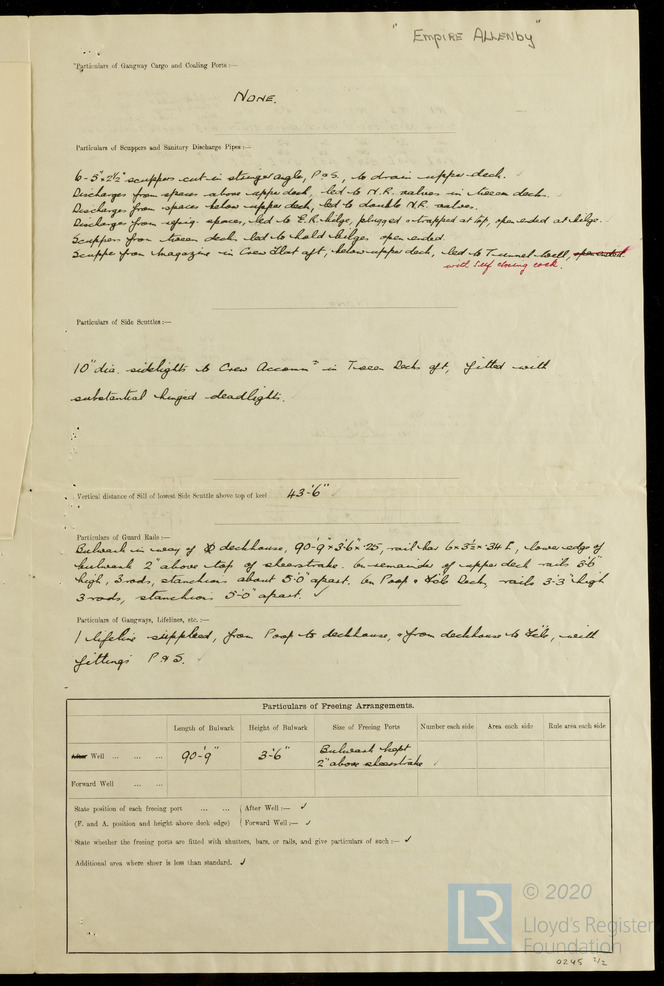 "Empire Allenby"
Particulars of Gangway Cargo and Coaling Ports:—
None.
Particulars of Scuppers and Sanitary Discharge Pipes:—
6-5"×2½" scuppers cut in stringer angle, P & S., to drain upper deck.
Discharges from spaces above upper deck, led to N.R. valves in tween deck.
Discharges from spaces below upper deck, led to double N.R. valves.
Discharges from spaces, led to E.R. bilge, plugged & strapped at top, open ended at bilge.
Scuppers from tween deck led to hold bilges open ended.
Scupper from magazine in Crew Flat aft, below upper deck, led to Tunnel Well, open ended.
with self closing cock.
Particulars of Side Scuttles:—
10" dia. sidelights to Crew Accomn in Tween Decks aft, fitted with
substantial hinged deadlights.
Vertical distance of Sill of lowest Side Scuttle above top of keel 43'-6"
Particulars of Guard Rails:—
Bulwark in way of deckhouse, 90'-9" × 3'-6" × .25, rail bar 6 × 3½ × .34, lower edge of
bulwark 2" above top of sheerstrake. On remainder of upper deck rails 3'-6"
high, 3 rods, stanchions about 5'-0" apart. On Poop & F'cle Deck, rails 3'-3" high
3 rods, stanchions 5'-0" apart. ✓
Particulars of Gangways, Lifelines, etc.:—
1 lifeline supplied, from Poop to deckhouse, & from deckhouse to F'cle, with
fittings P & S.
Particulars of Freeing Arrangements.
Length of Bulwark Height of Bulwark Size of Freeing Ports Number each side Area each side Rule area each side
After Well ... ... ... 90'-9" 3'-6" Bulwark kept
2" above sheerstrake
Forward Well ... ...
State position of each freeing port ... ... After Well:— ✓
(F. and A. position and height above deck edge) Forward Well:— ✓
State whether the freeing ports are fitted with shutters, bars, or rails, and give particulars of such:— ✓
Additional area where sheer is less than standard. ✓
LR © 2020
Lloyd's Register
Foundation
0245 2/2